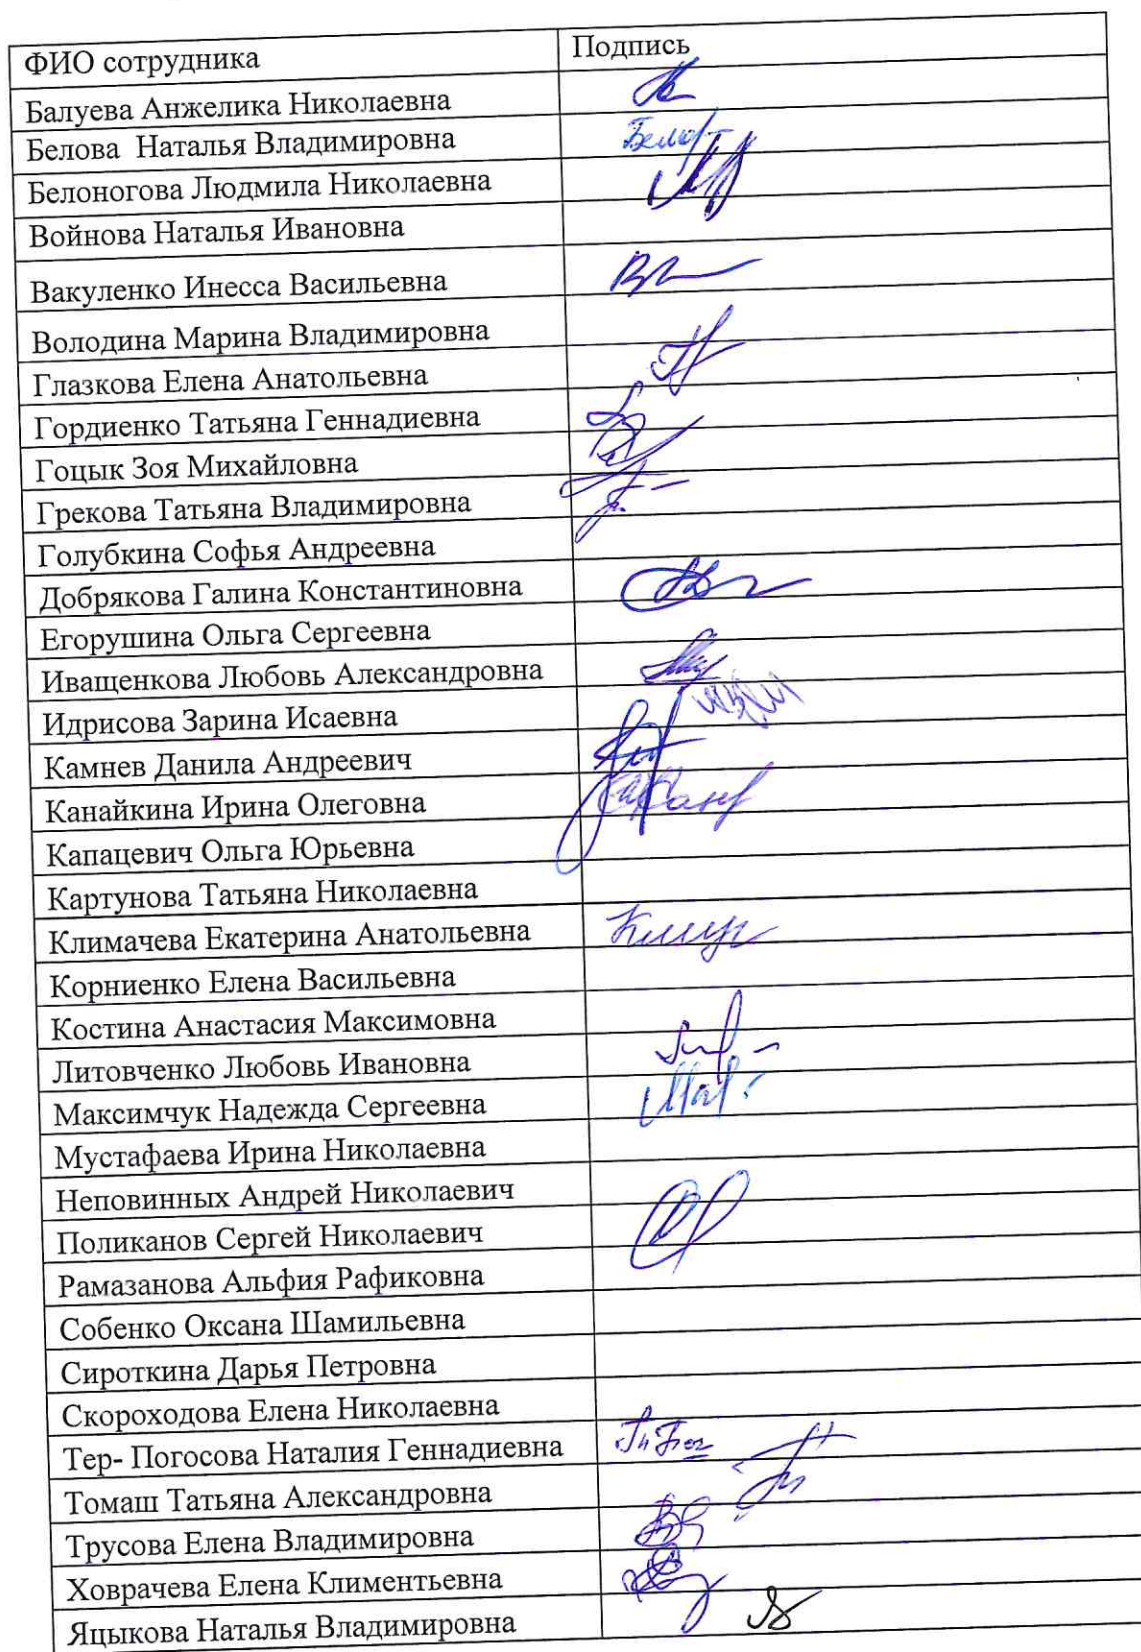 ФИО сотрудника Подпись
Балуева Анжелика Николаевна
Белова Наталья Владимировна
Белоногова Людмила Николаевна
Войнова Наталья Ивановна
Вакуленко Инесса Васильевна
Володина Марина Владимировна
Глазкова Елена Анатольевна
Гордиенко Татьяна Геннадиевна
Гоцык Зоя Михайловна
Грекова Татьяна Владимировна
Голубкина Софья Андреевна
Добрякова Галина Константиновна
Егорушина Ольга Сергеевна
Иващенкова Любовь Александровна
Идрисова Зарина Исаевна
Камнев Данила Андреевич
Канайкина Ирина Олеговна
Капацевич Ольга Юрьевна
Картунова Татьяна Николаевна
Климачева Екатерина Анатольевна
Корниенко Елена Васильевна
Костина Анастасия Максимовна
Литовченко Любовь Ивановна
Максимчук Надежда Сергеевна
Мустафаева Ирина Николаевна
Неповинных Андрей Николаевич
Поликанов Сергей Николаевич
Рамазанова Альфия Рафиковна
Собенко Оксана Шамильевна
Сироткина Дарья Петровна
Скороходова Елена Николаевна
Тер- Погосова Наталия Геннадиевна
Томаш Татьяна Александровна
Трусова Елена Владимировна
Ховрачева Елена Климентьевна
Яцыкова Наталья Владимировна